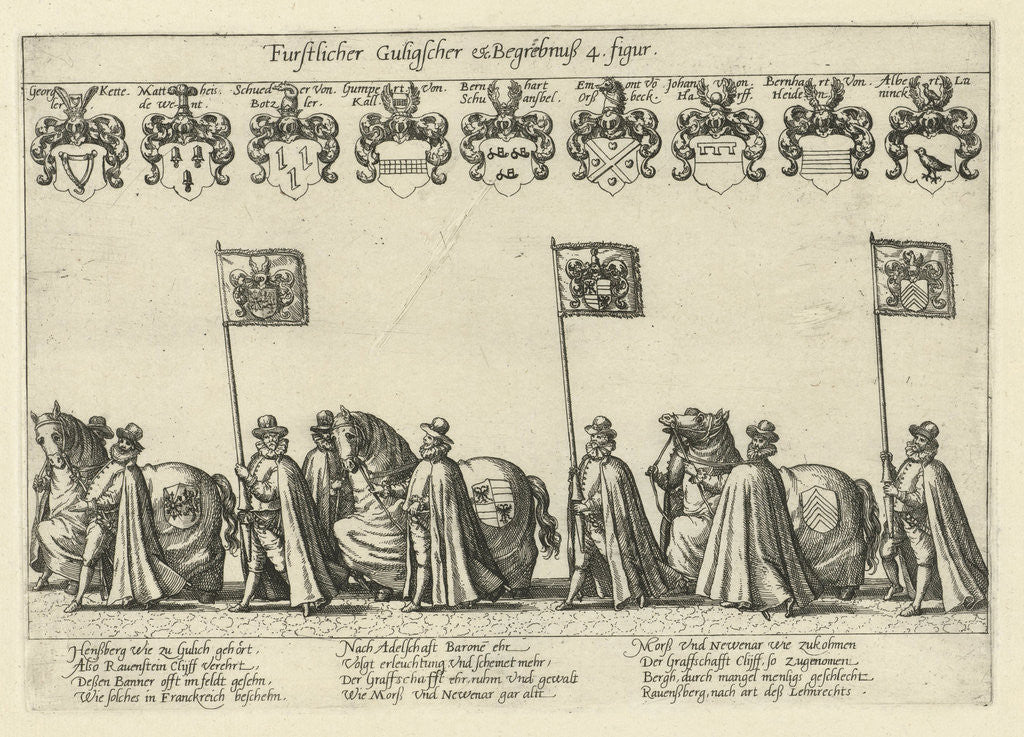 Furstlicher Guligscher &. Begrebnuß 4. figur.
Georg Kette. Matt heis. Schued er Von. Gumpe rt Von. Bern hart Em ont Võ Johan Von. Bernha rt Von. Albe rt Lu
ler de We nt. Botz ler. Kall. Schu ansbel. Orß beck. Ha rff. Heide n. ninck
Henßberg wie zu Gulich gehört,
Also Rauenstein Clyff Verehrt,
Deßen Banner offt im feldt gesehn,
Wie solches in Franckreich beschehn.
Nach Adelschaft Baronẽ ehr
Volgt erleuchtung Vnd scheinet mehr,
Der Graffschafft ehr, ruhm Vnd gewalt
Wie Morß Vnd Newenar gar alt
Morß Vnd Newenar wie zukohmen
Der Graffschafft Cliff, so Zugenomen
Bergh, durch mangel menligs geschlecht
Rauenßberg, nach art deß Lehnrechts.